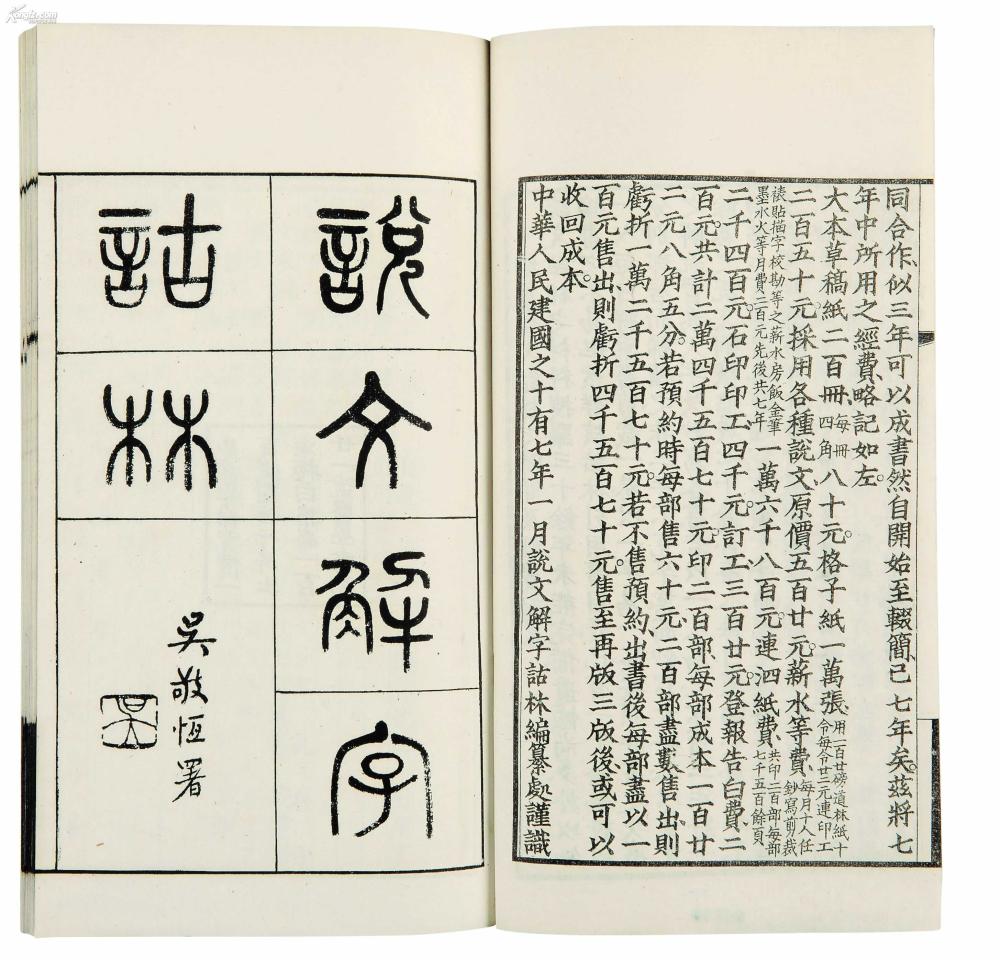 同合作、似三年可以成書、然自開始至輟簡、已七年矣。茲將七
年中所用之經費、略記如左。
大本草稿紙二百冊、每冊四角八十元。格子紙一萬張、用一百廿磅道林紙十令每令廿二元連印工
二百五十元。採用各種說文、原價五百廿元。薪水等費、每月十人任鈔寫剪裁
裱貼描字校勘等之薪水房飯金筆墨水火等月費二百元先後共七年一萬六千八百元、連泗紙費、共印二百部每部七千五百餘頁
二千四百元。石印印工、四千元。訂工、三百廿元。登報告白費、二
百元。共計二萬四千五百七十元。印二百部、每部成本一百廿
二元八角五分。若預約時每部售六十元、二百部盡數售出、則
虧折一萬二千五百七十元。若不售預約、出書後每部盡以一
百元售出、則虧折四千五百七十元。售至再版三版後、或可以
收回成本。
中華人民建國之十有七年一月說文解字詁林編纂處謹識
說文解字
詁林
吳敬恆署
吳